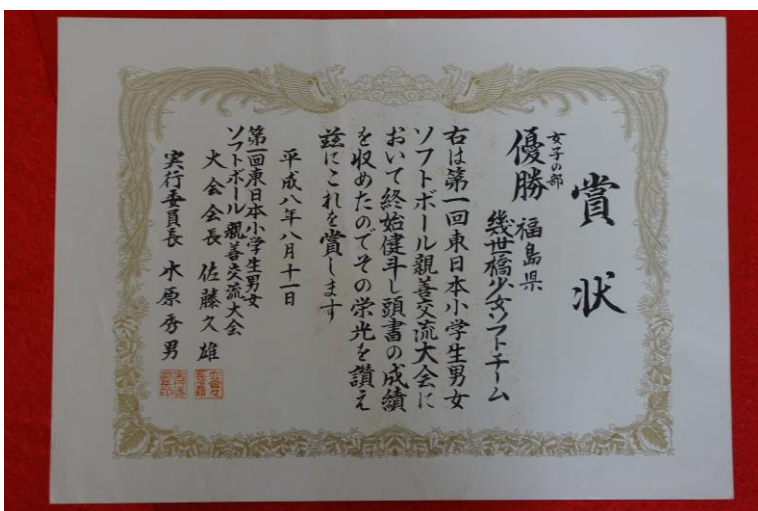 賞状
女子の部
優勝
福島県
幾世橋少女ソフトチーム
右は第一回東日本小学生男女
ソフトボール親善交流大会に
おいて終始健斗し頭書の成績
を収めたのでその栄光を讃え
茲にこれを賞します
平成八年八月十一日
第一回東日本小学生男女
ソフトボール親善交流大会
大会会長 佐藤久雄
実行委員長 木原秀男